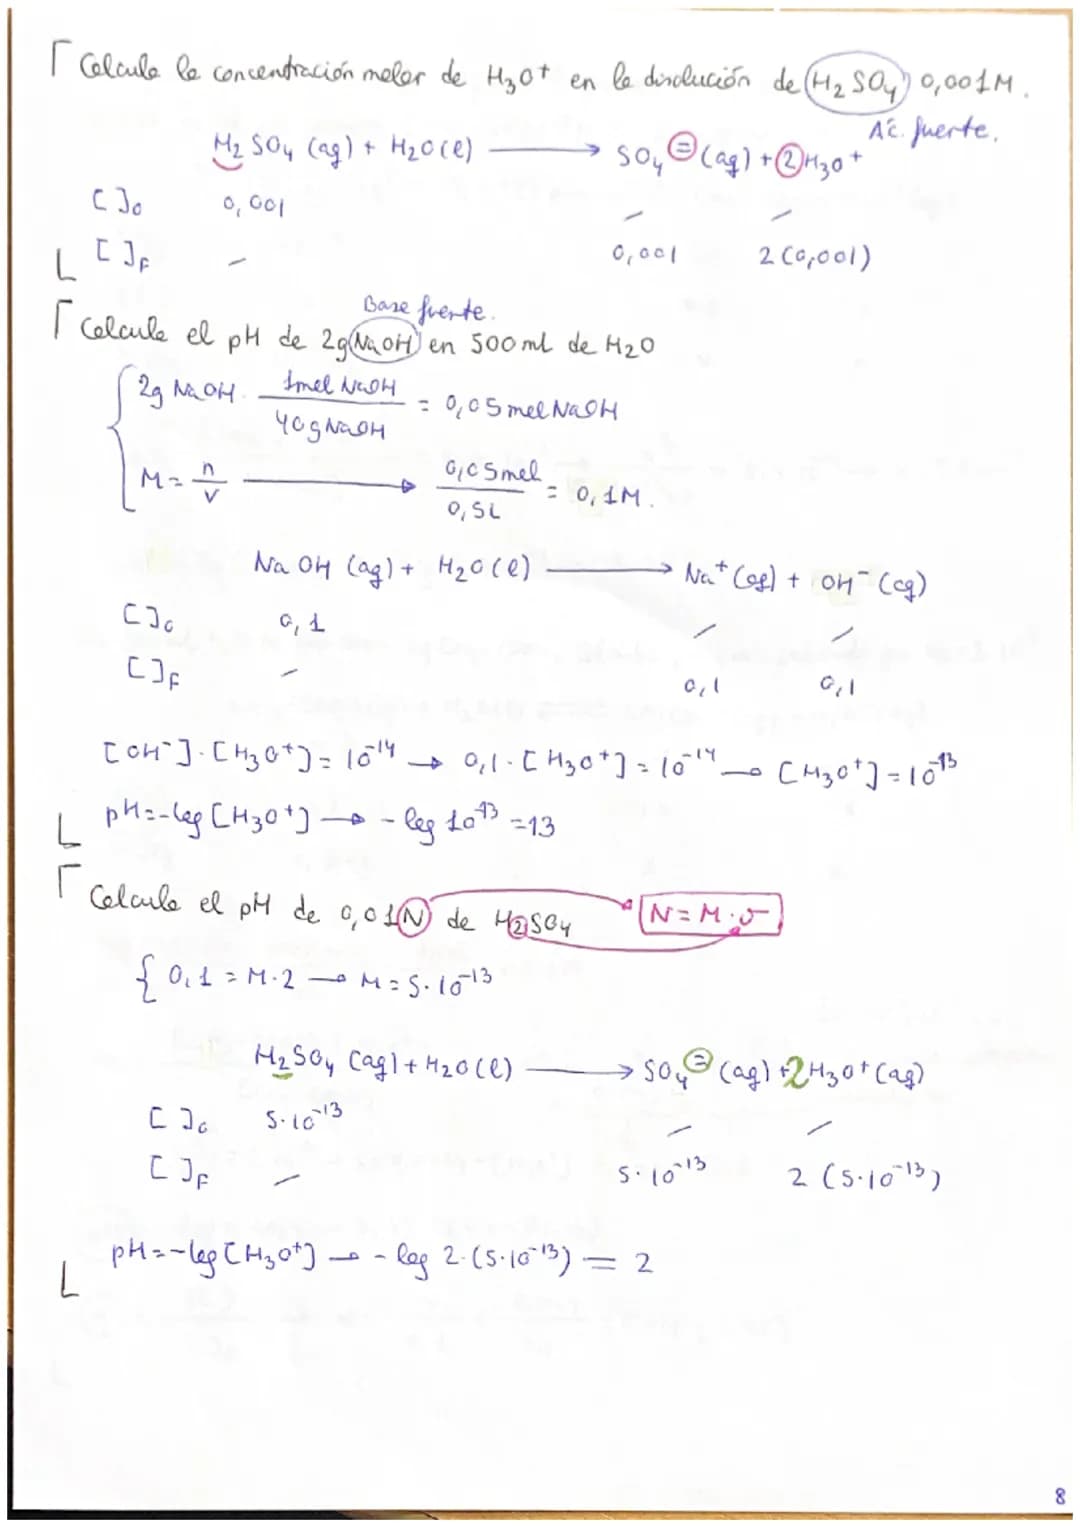 Calcula la concentración molar de H₃O⁺ en la disolución de H₂SO₄ 0,001M.
Ác. fuerte.
H₂SO₄ (aq) + H₂O(l) → SO₄⁼ (aq) + 2H₃O⁺
[ ]₀ 0,001 – –
[ ]F – 0,001 2(0,001)
Base fuerte.
Calcula el pH de 2g NaOH en 500ml de H₂O
2g NaOH · 1mol NaOH / 40g NaOH = 0,05 mol NaOH
M = n/v → 0,05mol / 0,5L = 0,1M.
NaOH (aq) + H₂O(l) → Na⁺(aq) + OH⁻(aq)
[ ]₀ 0,1 – –
[ ]F – 0,1 0,1
[OH⁻]·[H₃O⁺] = 10⁻¹⁴ → 0,1·[H₃O⁺] = 10⁻¹⁴ → [H₃O⁺] = 10⁻¹³
pH=-log [H₃O⁺] → - log 10⁻¹³ = 13
Calcula el pH de 0,01N de H₂SO₄ N = M·v
0,1 = M·2 → M = 5·10⁻¹³
H₂SO₄ (aq) + H₂O(l) → SO₄⁼ (aq) + 2H₃O⁺(aq)
[ ]₀ 5·10⁻¹³ – –
[ ]F – 5·10⁻¹³ 2 (5·10⁻¹³)
pH=-log [H₃O⁺] → - log 2·(5·10⁻¹³) = 2
8